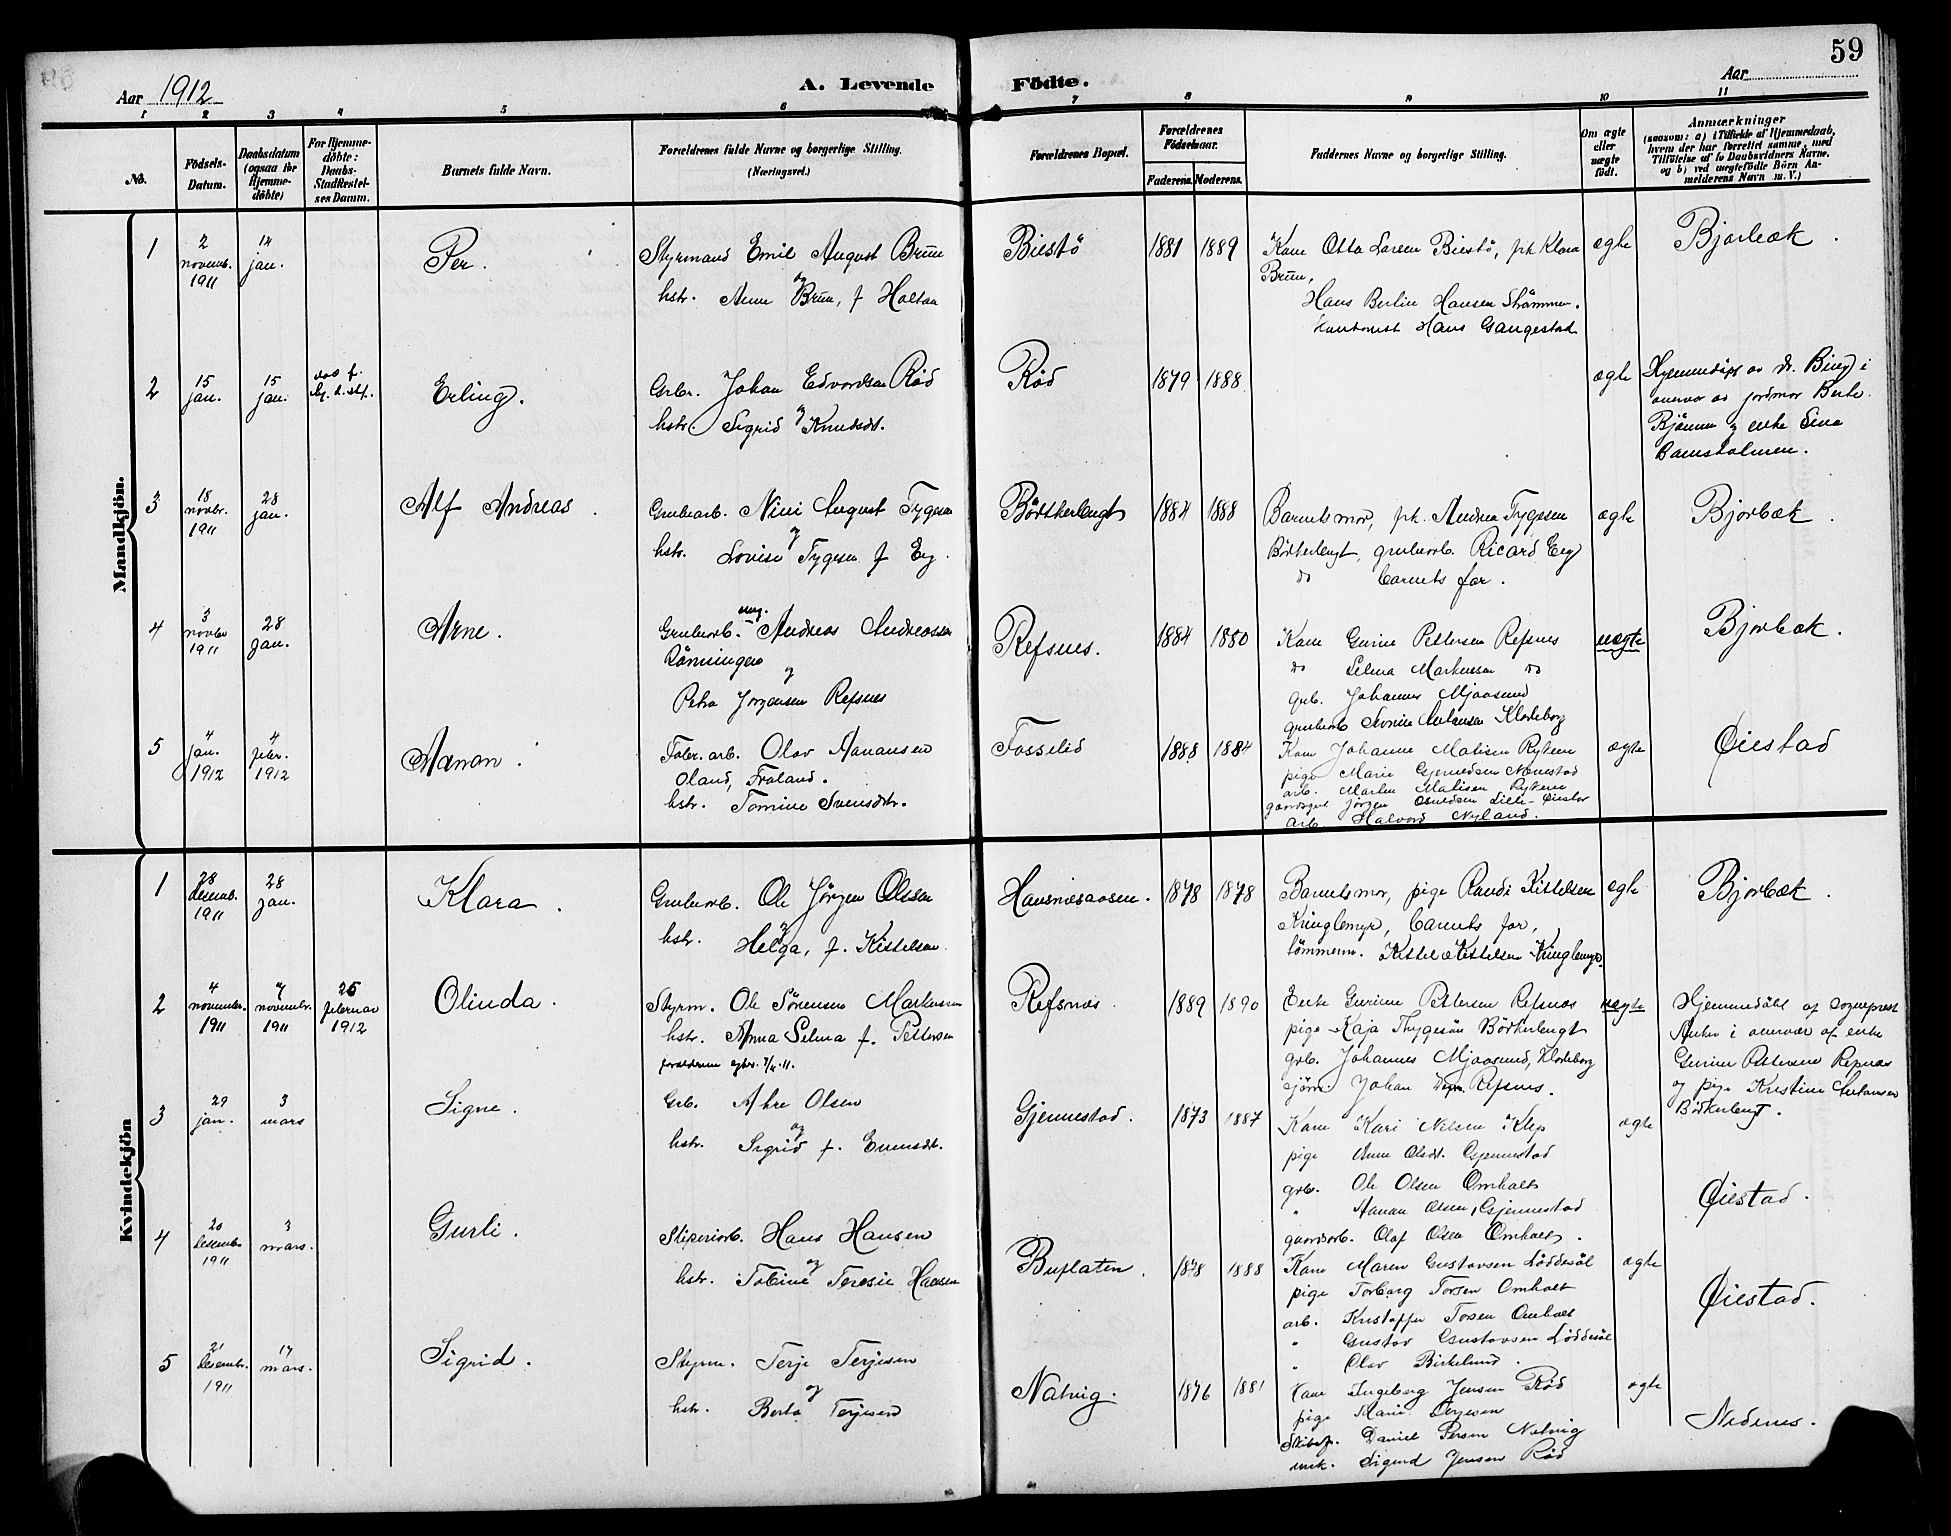 59
Aar 1912
A. Levende Födte.
Aar
1 2 3 4 5 6 7 8 9 10 11
No.
Födsels-Datum.
Daabsdatum (ogsaa for Hjemme-döbte)
For Hjemme-döbte: Daabs-Stadfæstel-ses Datum.
Barnets fulde Navn.
Forældrenes fulde Navne og borgerlige Stilling. (Næringsvei.)
Forældrenes Bopæl.
Forældrenes Födselsaar.
Faderens. Moderens.
Faddernes Navne og borgerlige Stilling.
Om ægte eller uægte födt.
Anmærkninger
(saasom: a) i Tilfælde af Hjemmedaab, hvem der har forrettet samme, med Tilföielse af to Daabsvidners Navne, og b) ved uægtefödte Börn An-melderens Navn m. V.)
Mandkjön.
1
2 novemb. 1911
14 jan.
Per.
Styrmand Emil August Brun
og
hstr. Anne Brun, f. Holtan
Biestö
1881 1889
Kone Otta Larsen Biestö, frk Klara
Brun,
Hans Berlin Hansen
Hans Gangestad
ægte
Bjorbæk.
2
15 jan.
15 jan.
Erling.
Grbr. Johan Edvardsen Röd
og
hstr. Sigrid Knudsdt.
Röd
1879 1888
ægte
Hjemmedöpt av dr. Bing i
overvær av jordmor Berte
og enke Lina
3
18 novbr. 1911
28 jan.
Alf Andreas.
Grubearb. Nini August Tygesen
og
hstr. Lovise Tygesen f. Eeg.
Börkerlengt
1884 1888
Barnets mor, frk. Andrea Tygesen
Börkerlengt, grubearb. Ricard Eeg
do barnets far.
ægte
Bjorbæk.
4
3 novbr 1911
28 jan.
Arne.
ung.
Grubearb. Andreas Andreassen
Rönningen
og
Petra Jörgensen Refsnes
Refsnes.
1884 1880
Kone Gurine Pettersen Refsnes
do Selma Markussen do
grb. Johannes Mjaasund
grubearb Klodeborg
uægte
Bjorbæk.
5
4 jan. 1912
4 febr. 1912
Aanon.
Fabr. arb. Olav Aanansen
Oland, Froland.
hstr. Tomine Svensdtr.
Fosselid
1888 1884
Kone Johanne Matisen Rykene
pige Marie Gjeruldsen Nænestad
arb. Martin Matisen Rykene
gaardsgut Jörgen Osuldsen Lille-Öiestad
arb. Halvord Nyland.
ægte
Öiestad
Kvindekjön
1
28 desemb. 1911
28 jan.
Klara.
Grubearb. Ole Jörgen Olsen
og
hstr. Helga, f. Kittelsen
Hausnesaasen.
1878 1878
Barnets mor, pige Randi Kittelsen
Kringlemyr, barnets far,
tömmerm. Kittel Kittelsen Kringlemyr.
ægte
Bjorbæk.
2
4 november 1911
7 novembr. 1911
25 februar 1912
Olinda.
Styrm. Ole Sörensen Markussen
hstr. Anna Selma f. Pettersen
forældrene egtev. 7/11.11.
Refsnæs.
1889 1890
Enke Gurine Pettersen Refsnæs
pige Kaja Thygesön Börkerlengt
grb. Johannes Mjaasund, Klodeborg
sjöm. Johan Refsnes.
uægte
Hjemmedöbt af sogneprest
Anker i overvær af enke
Gurine Pettersen Refsnæs
og pige Kristine Antonsen
Börkerlengt.
3
29 jan.
3 mars
Signe.
Grb. Akre Olsen
og
hstr. Sigrid f. Evensdt.
Gjennestad.
1873 1887
Kone Kari Nilsen Klep
pige Anne Olsdt. Gjennestad
grb. Ole Olsen Omholt
" Aanan Olsen, Gjennestad
gaardarb. Olaf Olsen Omholt.
ægte
Öiestad.
4
20 desembr. 1911
3 mars.
Gurli.
Sliperiarb. Hans Hansen
og
hstr. Tobine Teresie Hansen
Buflaten.
1878 1888
Kone Maren Gustavsen Löddesöl
pige Torborg Torsen Omholt
arb. Kristoffer Tosen Omholt
" Gustav Gustavsen Löddesöl
" Olav Birkelund.
ægte
Öiestad.
5
21 desembr. 1911
17 mars.
Sigrid.
Styrm. Terje Terjesen
og
hstr. Berta Terjesen
Natvig.
1876 1881
Kone Ingeborg Jensen Röd
pige Marie Terjesen
Skibsf. Daniel Persen Natvig
mek. Sigurd Jensen Röd
ægte
Nedenes.